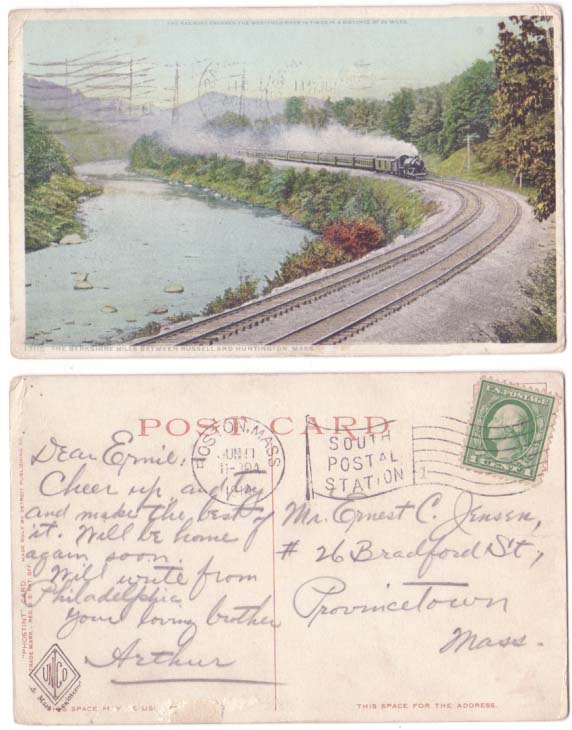 THE RAILROAD CROSSES THE WESTFIELD RIVER 14 TIMES IN A DISTANCE OF 20 MILES.
THE BERKSHIRE HILLS BETWEEN RUSSELL AND HUNTINGTON, MASS.
POST CARD
BOSTON, MASS.
JUN 11
11-30A
SOUTH
POSTAL
STATION
1
U.S. POSTAGE
1 CENT 1
Dear Ernie:
Cheer up and try
and make the best of
it. Will be home
again soon.
Will write from
Philadelphia.
Your loving brother
Arthur
Mr. Ernest C. Jensen,
# 26 Bradford St,
Provincetown
Mass.
"PHOSTINT" CARD MADE ONLY BY DETROIT PUBLISHING CO.
TRADE MARK - REG. U.S. PAT. OFF.
UNCO
THIS SPACE MAY BE USED
THIS SPACE FOR THE ADDRESS.